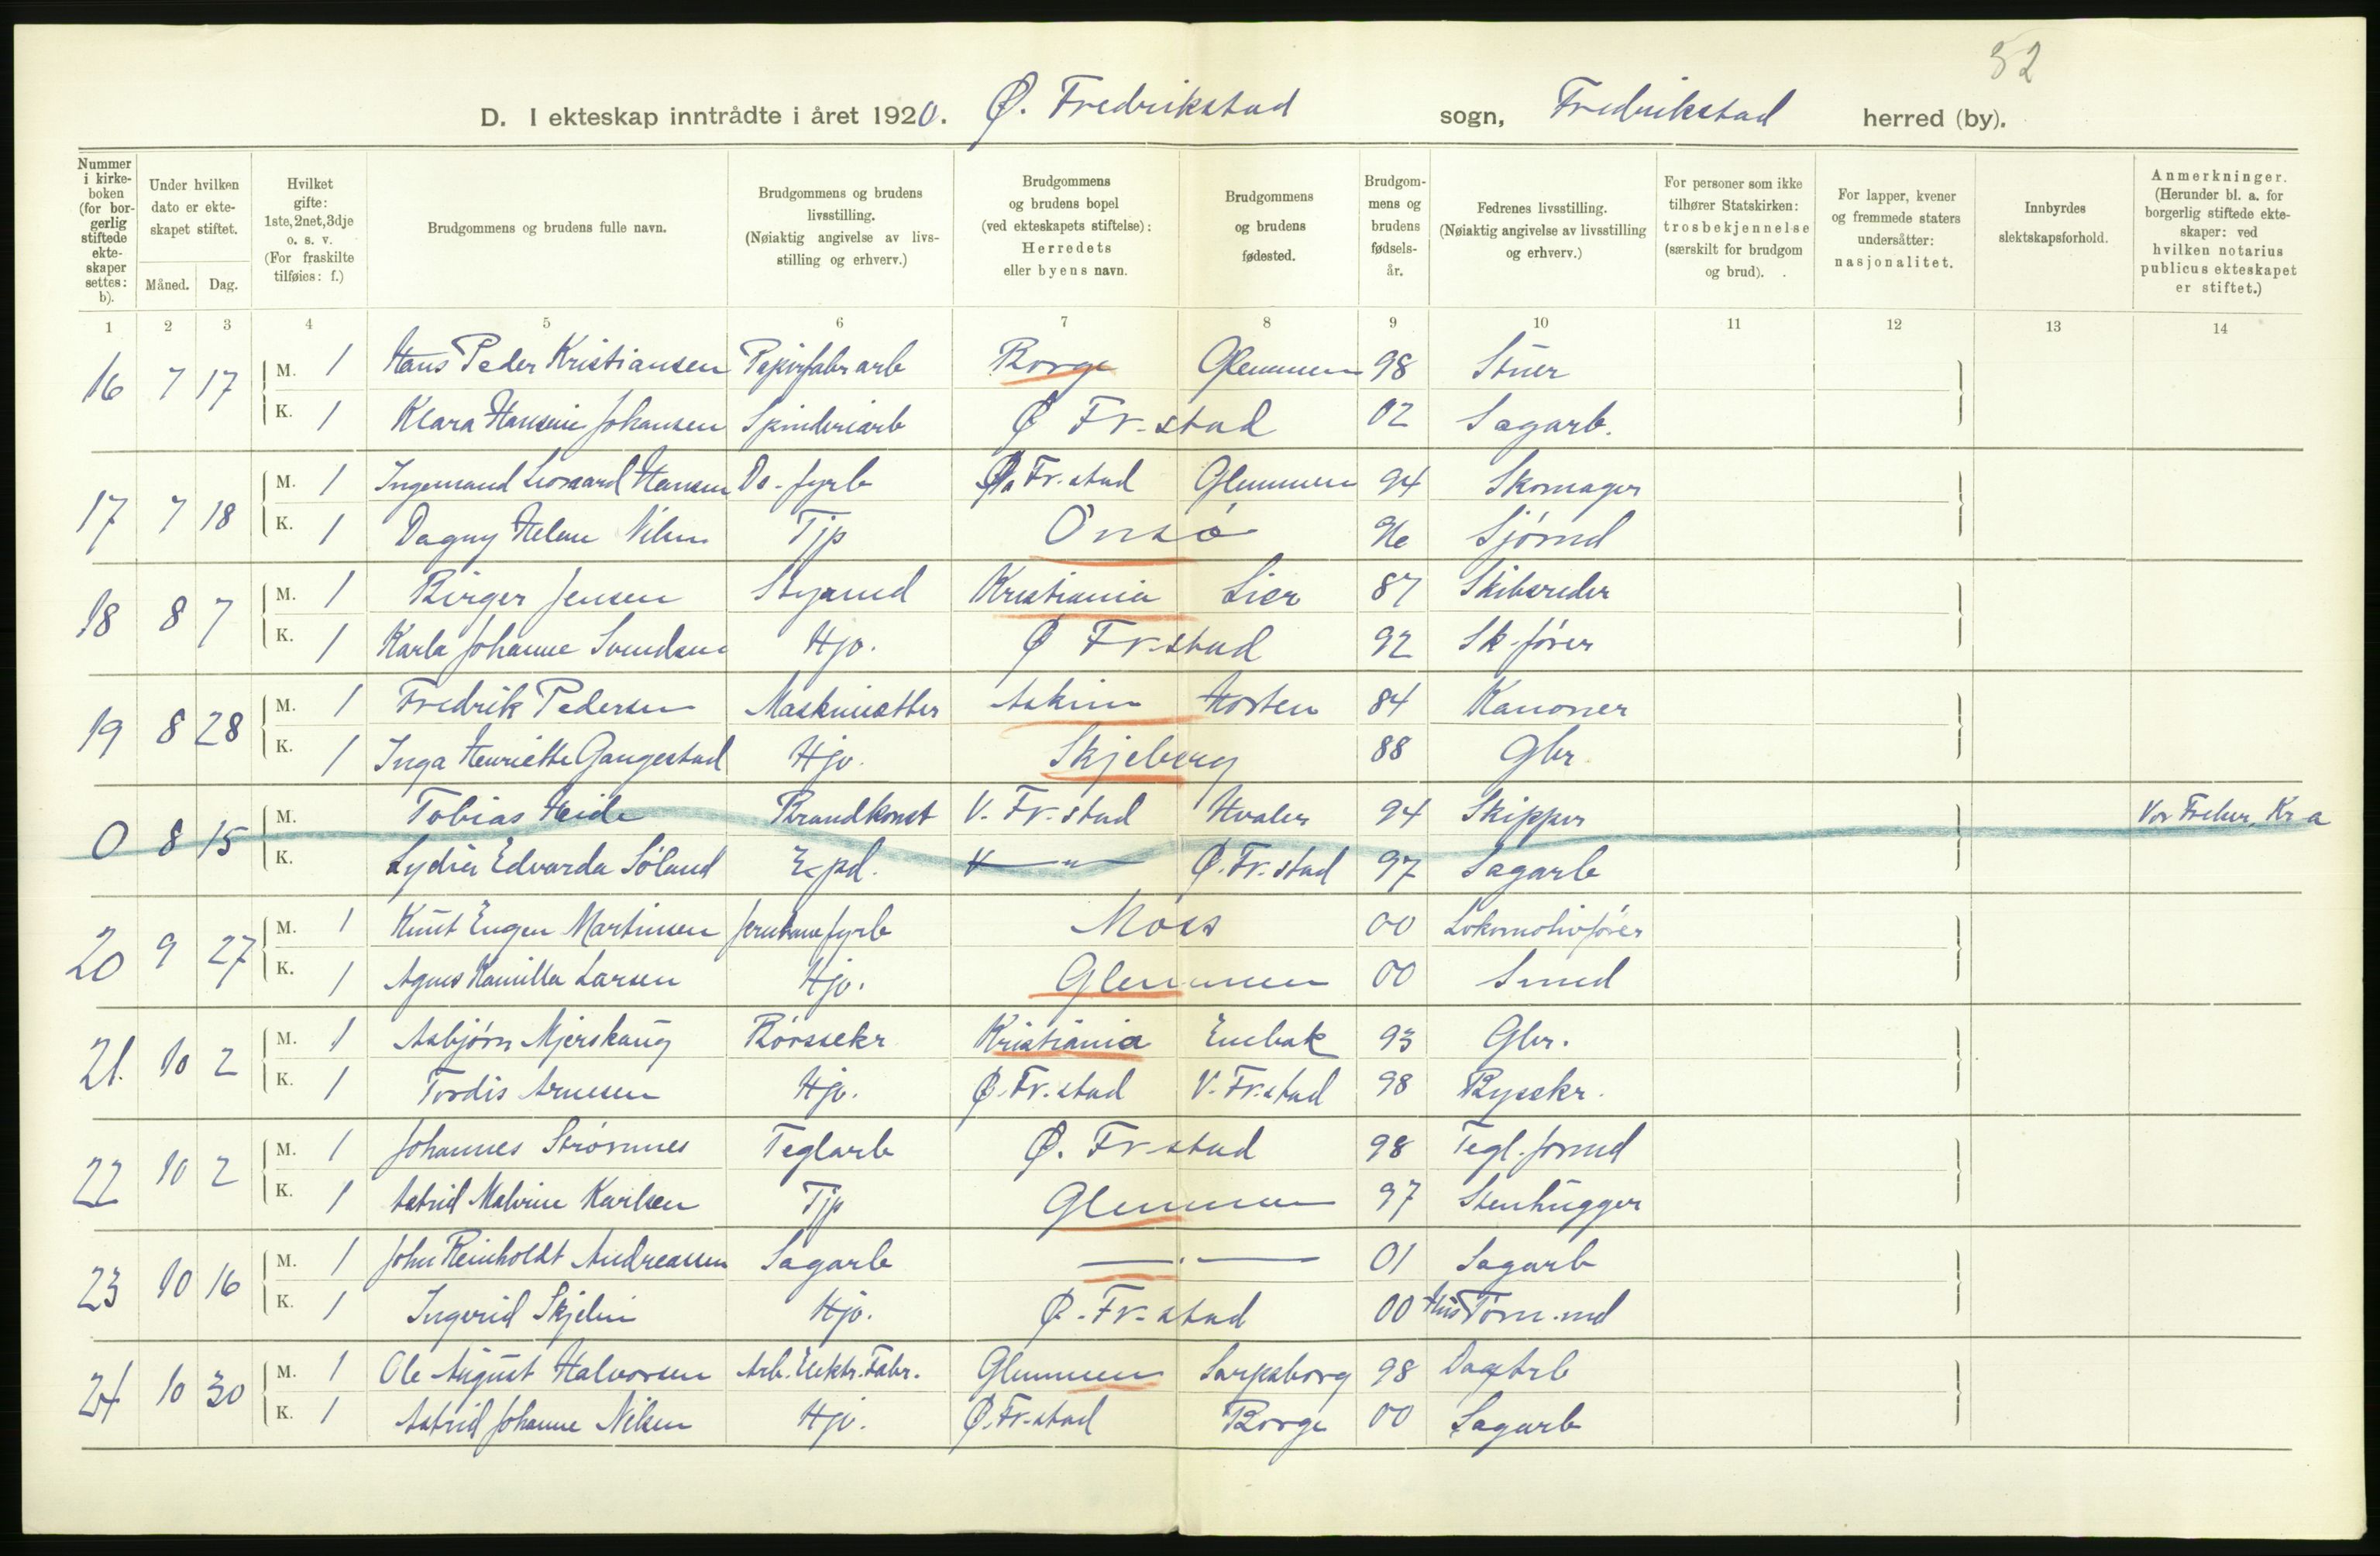 52
D. I ekteskap inntrådte i året 1920. Ø. Fredrikstad sogn, Fredrikstad herred (by).
Nummer i kirke-boken (for bor-gerlig stiftede ekte-skaper settes: b).
Under hvilken dato er ekte-skapet stiftet.
Måned. Dag.
Hvilket gifte: 1ste, 2net, 3dje o. s. v. (For fraskilte tilføies: f.)
Brudgommens og brudens fulle navn.
Brudgommens og brudens livsstilling. (Nøiaktig angivelse av livs-stilling og erhverv.)
Brudgommens og brudens bopel (ved ekteskapets stiftelse): Herredets eller byens navn.
Brudgommens og brudens fødested.
Brudgom-mens og brudens fødsels-år.
Fedrenes livsstilling. (Nøiaktig angivelse av livsstilling og erhverv.)
For personer som ikke tilhører Statskirken: trosbekjennelse (særskilt for brudgom og brud).
For lapper, kvener og fremmede staters undersåtter: nasjonalitet.
Innbyrdes slektskapsforhold.
Anmerkninger. (Herunder bl. a. for borgerlig stiftede ekte-skaper: ved hvilken notarius publicus ekteskapet er stiftet.)
1 2 3 4 5 6 7 8 9 10 11 12 13 14
16 7 17 M. 1 Hans Peder Kristiansen Papirfabrarb Borge Glemmen 98 Stuer
K. 1 Klara Hansine Johansen Spinderiarb Ø Fr.stad 02 Sagarb.
17 7 18 M. 1 Ingemand Leonard Hansen Ds-fyrb Ø. Fr.stad Glemmen 94 Skomager
K. 1 Dagny Helene Nilsen Tjp Onsø 96 Sjømd
18 8 7 M. 1 Birger Jensen Styrmd Kristiania Lier 87 Skibsreder
K. 1 Karla Johanne Svendsen Hjv. Ø Fr.stad 92 Sk-fører
19 8 28 M. 1 Fredrik Pedersen Maskinsetter Askim Horten 84 Kanoner
K. 1 Inga Henriette Gangestad Hjv. Skjeberg 88 Gbr
0 8 15 M. Tobias Heide Brandkonst V. Fr.stad Hvaler 94 Skipper Vor Frelser, Kr a
K. Lydia Edvarda Søland Expd. V —"— Ø. Fr.stad 97 Sagarb
20 9 27 M. 1 Knut Eugen Martinsen Jernbanefyrb Moss 00 Lokomotivfører
K. 1 Agnes Kamilla Larsen Hjv. Glemmen 00 Smed
21. 10 2 M. 1 Asbjørn Mjerskaug Børssekr Kristiania Enebak 93 Gbr.
K. 1 Tordis Arnesen Hjv. Ø. Fr.stad V. Fr.stad 98 Byssekr.
22 10 2 M. 1 Johannes Strømnes Teglarb Ø. Fr.stad 98 Tegl.formd
K. 1 Astrid Malvine Karlsen Tjp Glemmen 97 Stenhugger
23 10 16 M. 1 John Reinholdt Andreassen Sagarb —.— 01 Sagarb
K. 1 Ingerid Skjelin Hjv. Ø. Fr.stad 00 Tøm.md
24 10 30 M. 1 Ole August Halvorsen Arb. Elektr. Fabr. Glemmen Sarpsborg 98 DagArb
K. 1 Astrid Johanne Nilsen Hjv. Ø. Fr.stad Borge 00 Sagarb